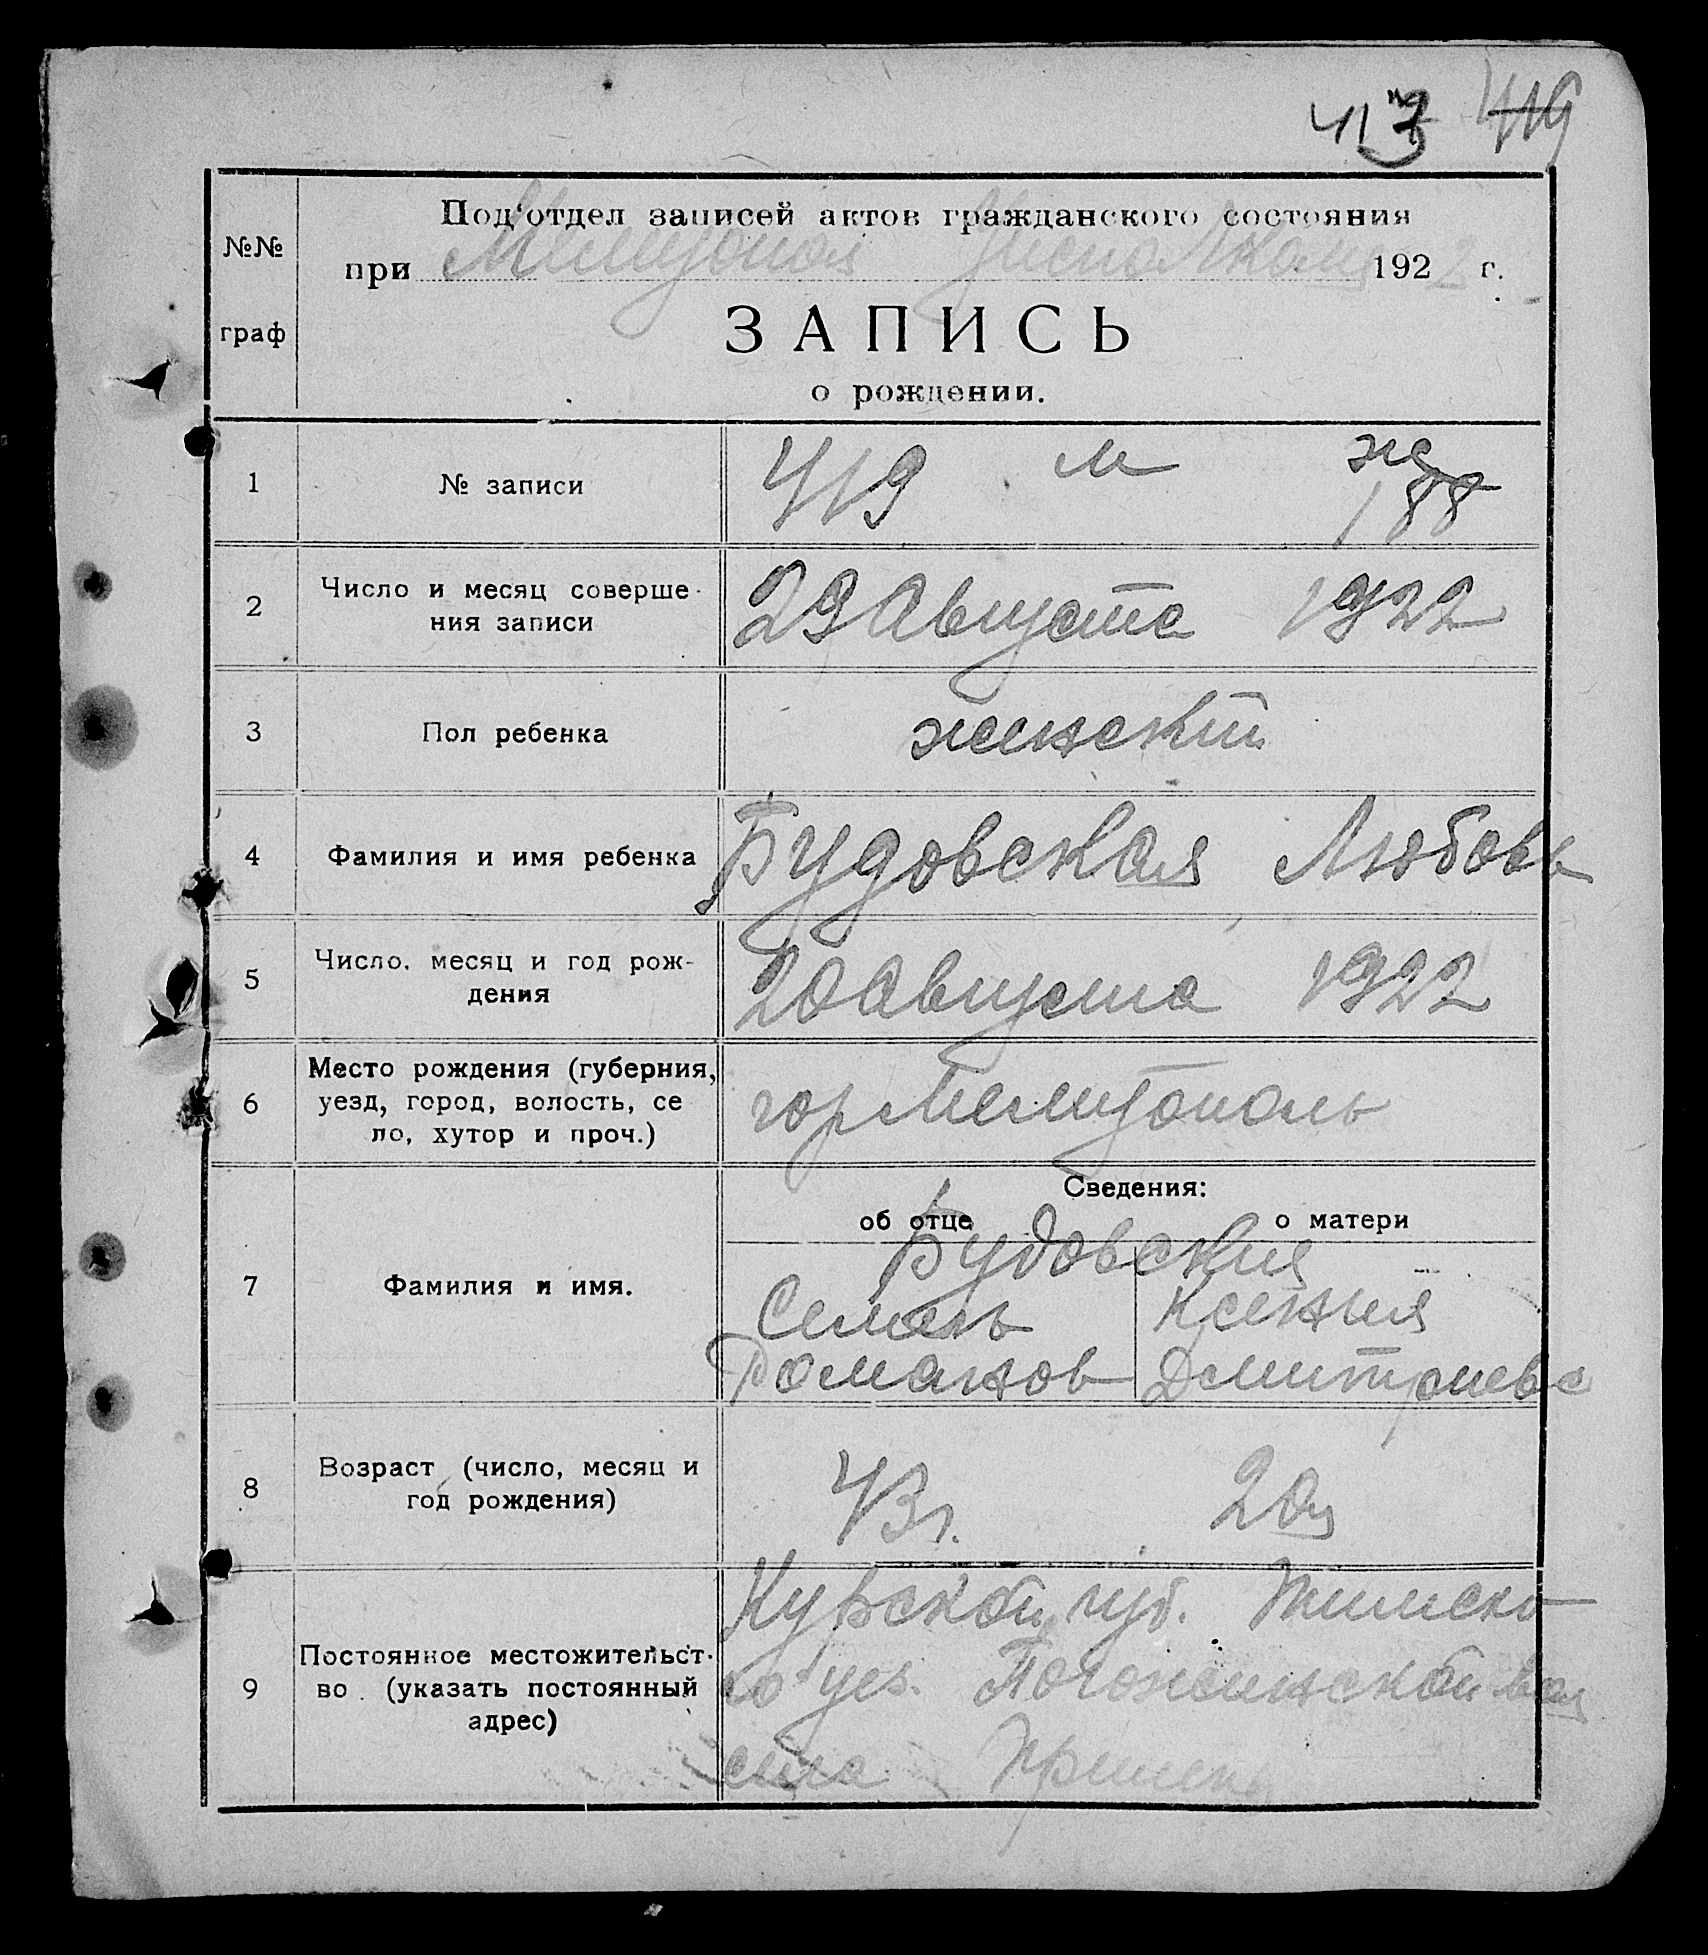 419
№№ граф
Под'отдел записей актов гражданского состояния
при Мелитополь Уисполкоме 1922 г.
ЗАПИСЬ
о рождении.
1 № записи 419 м ж 188
2 Число и месяц соверше-
ния записи 29 Августа 1922
3 Пол ребенка женский
4 Фамилия и имя ребенка Будовская Любовь
5 Число, месяц и год рож-
дения 20 Августа 1922
6 Место рождения (губерния,
уезд, город, волость, се
ло, хутор и проч.) гор Мелитополь
Сведения:
об отце о матери
Будовския
7 Фамилия и имя. Семень Ксения
Романов Дмитриева
8 Возраст (число, месяц и
год рождения) 43 г. 20
9 Постоянное местожительст-
во (указать постоянный
адрес)
Курской губ. Тимско
го уез. Погоженской вол
села